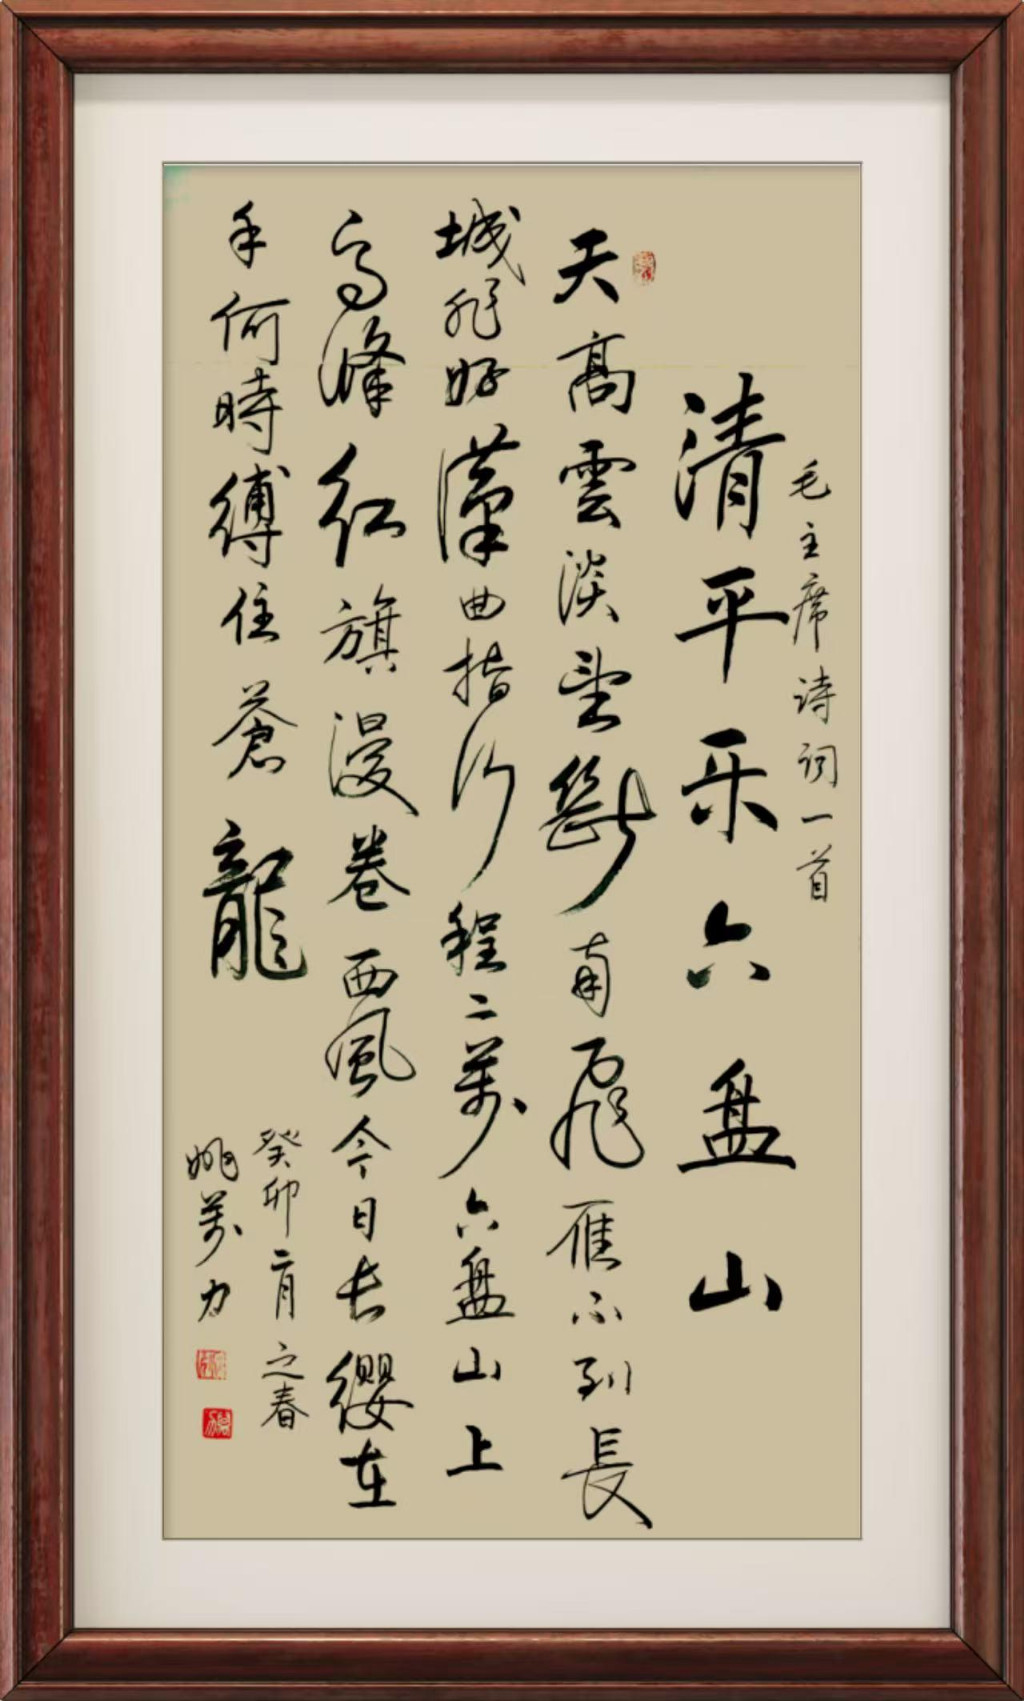 毛主席诗词一首
清平乐六盘山
天高雲淡望断南飛雁不到長
城非好漢曲指行程二萬六盘山上
高峰红旗漫卷西風今日长缨在
手何時缚住蒼龍
癸卯二月之春
姚萬力